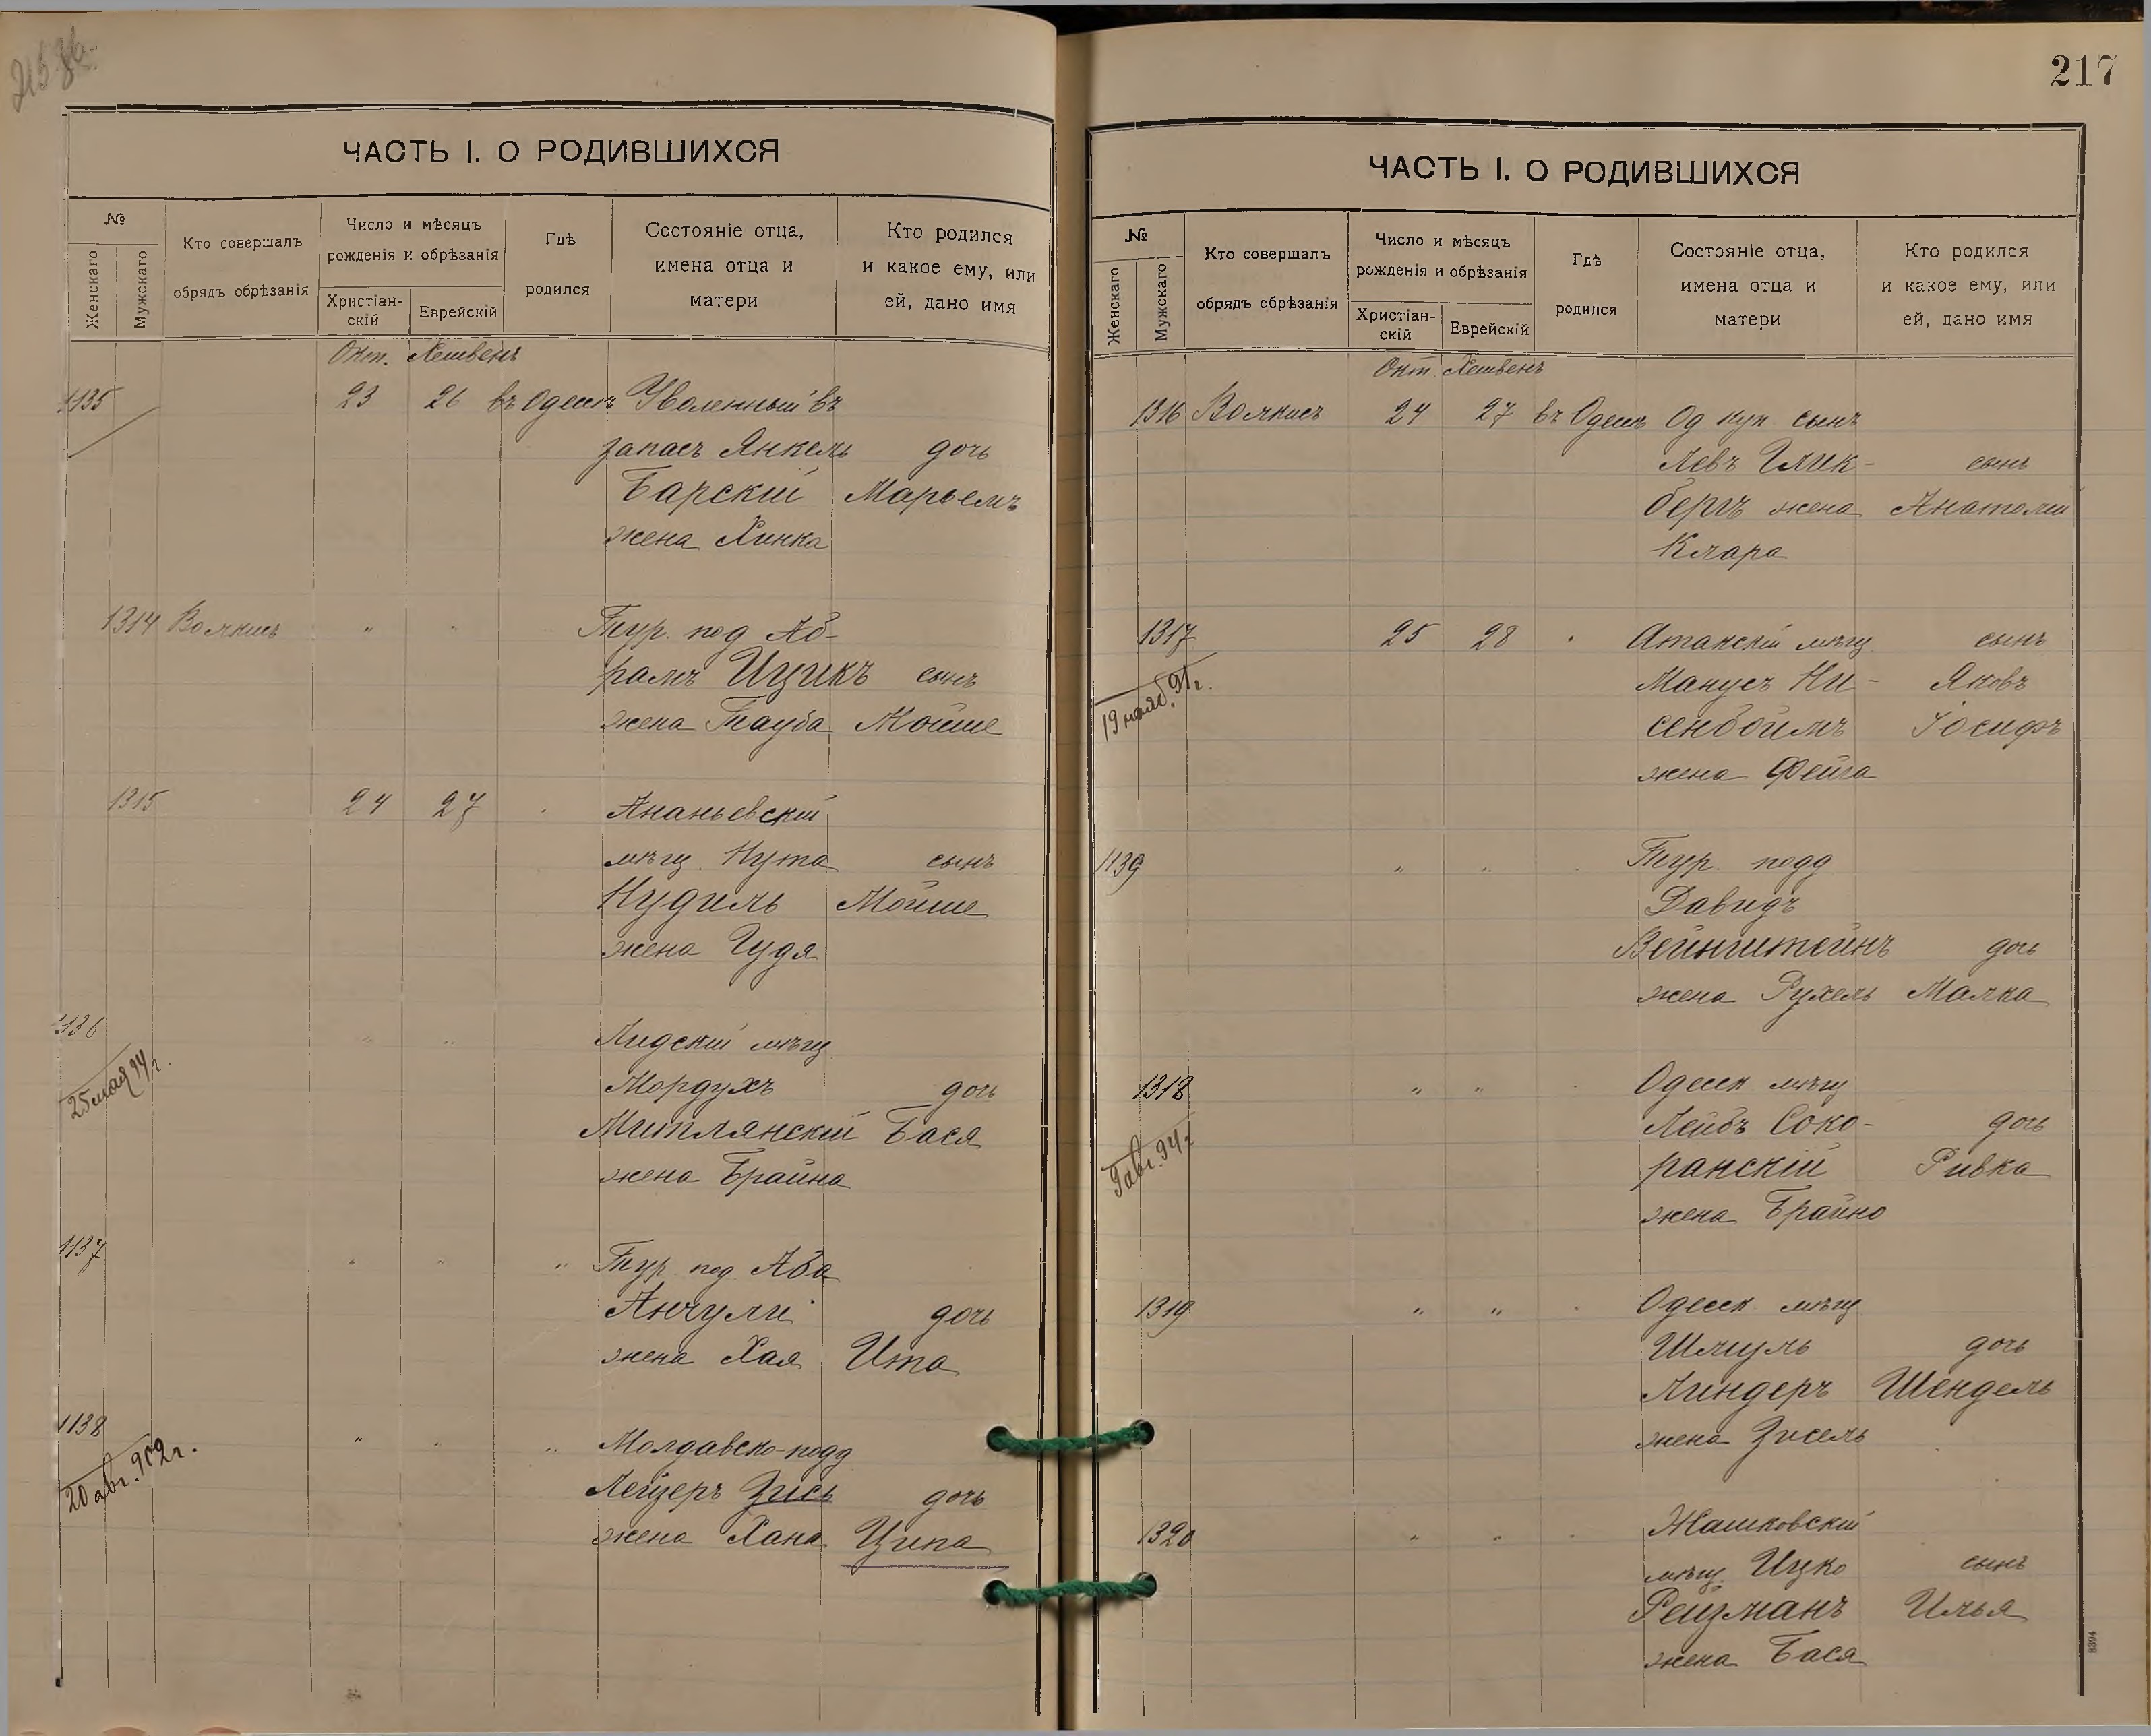 217
ЧАСТЬ I. О РОДИВШИХСЯ
№
Женскаго
Мужскаго
Кто совершалъ
обрядъ обрѣзанія
Число и мѣсяцъ
рожденія и обрѣзанія
Христіан-
скій
Еврейскій
Гдѣ
родился
Состояніе отца,
имена отца и
матери
Кто родился
и какое ему, или
ей, дано имя
Окт. Хешвенъ
1135 23 26 въ Одессѣ Уволенный въ
запасъ Янкель дочь
Барскій Марьемъ
жена Хинка
1314 Волкисъ " " Тур. под Аб-
рамъ Ицикъ сынъ
жена Тауба Мойше
1315 24 27 Ананьевскій
мѣщ. Нута сынъ
Нудиль Мойше
жена Гудя
1136 " " Лидскій мѣщ
25 мая 94 г.
Мордухъ дочь
Митлянскій Бася
жена Брайна
1137 " " " Тур под. Аба
Анчули дочь
жена Хая Ита
1138 " " " Молдавско-подд
20 авг. 902 г.
Лейзеръ Зись дочь
жена Хана Ципа
ЧАСТЬ I. О РОДИВШИХСЯ
№
Женскаго
Мужскаго
Кто совершалъ
обрядъ обрѣзанія
Число и мѣсяцъ
рожденія и обрѣзанія
Христіан-
скій
Еврейскій
Гдѣ
родился
Состояніе отца,
имена отца и
матери
Кто родился
и какое ему, или
ей, дано имя
Окт. Хешвенъ
1316 Волкисъ 24 27 въ Одессѣ Од куп сынъ
Левъ Глик- сынъ
бергъ жена Анатолій
Клара
1317 25 28 " Атакскій мѣщ сынъ
19 нояб. 91 г.
Манусъ Ни- Яковъ
сенбоймъ Іосифъ
жена Фейга
1139 " " Тур. подд
Давидъ
Вейнштейнъ дочь
жена Рухель Малка
1318 " " Одесск мѣщ
9 авг. 94 г
Лейбъ Соко- дочь
ранскій Ривка
жена Брайно
1319 " " Одесск. мѣщ
Шмуль дочь
Линдеръ Шендель
жена Зисель
1320 " " Жашковскій
мѣщ. Ицко сынъ
Рейзманъ Илья
жена Бася
8394